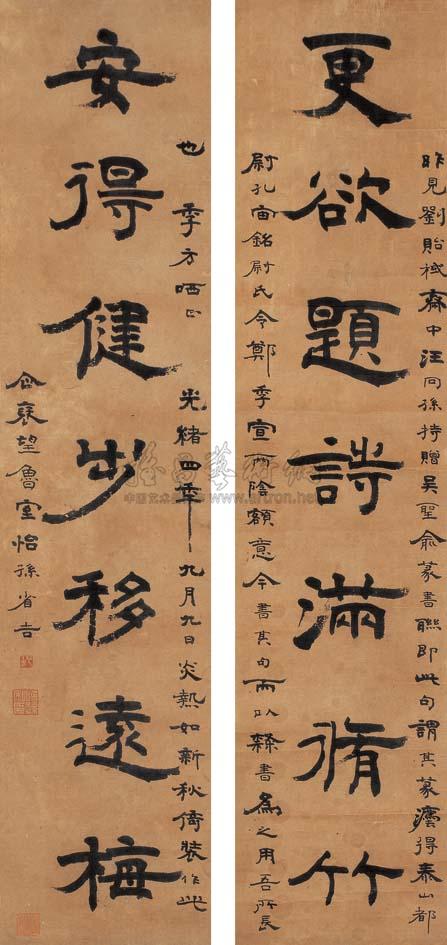 更欲題詩滿脩竹
昨見劉貽棫齋中汪同孫持贈吴聖俞篆書聯即此句謂其篆瀍得泰山都
尉孔宙銘尉氏令鄭季宣兩陰額意今書其句而以隸書為之用吾所長
也季方哂正
安得健步移遠梅
光緒四年九月九日炎熱如新秋倚裝作此
望魯室怡孫省吉
www.artron.net